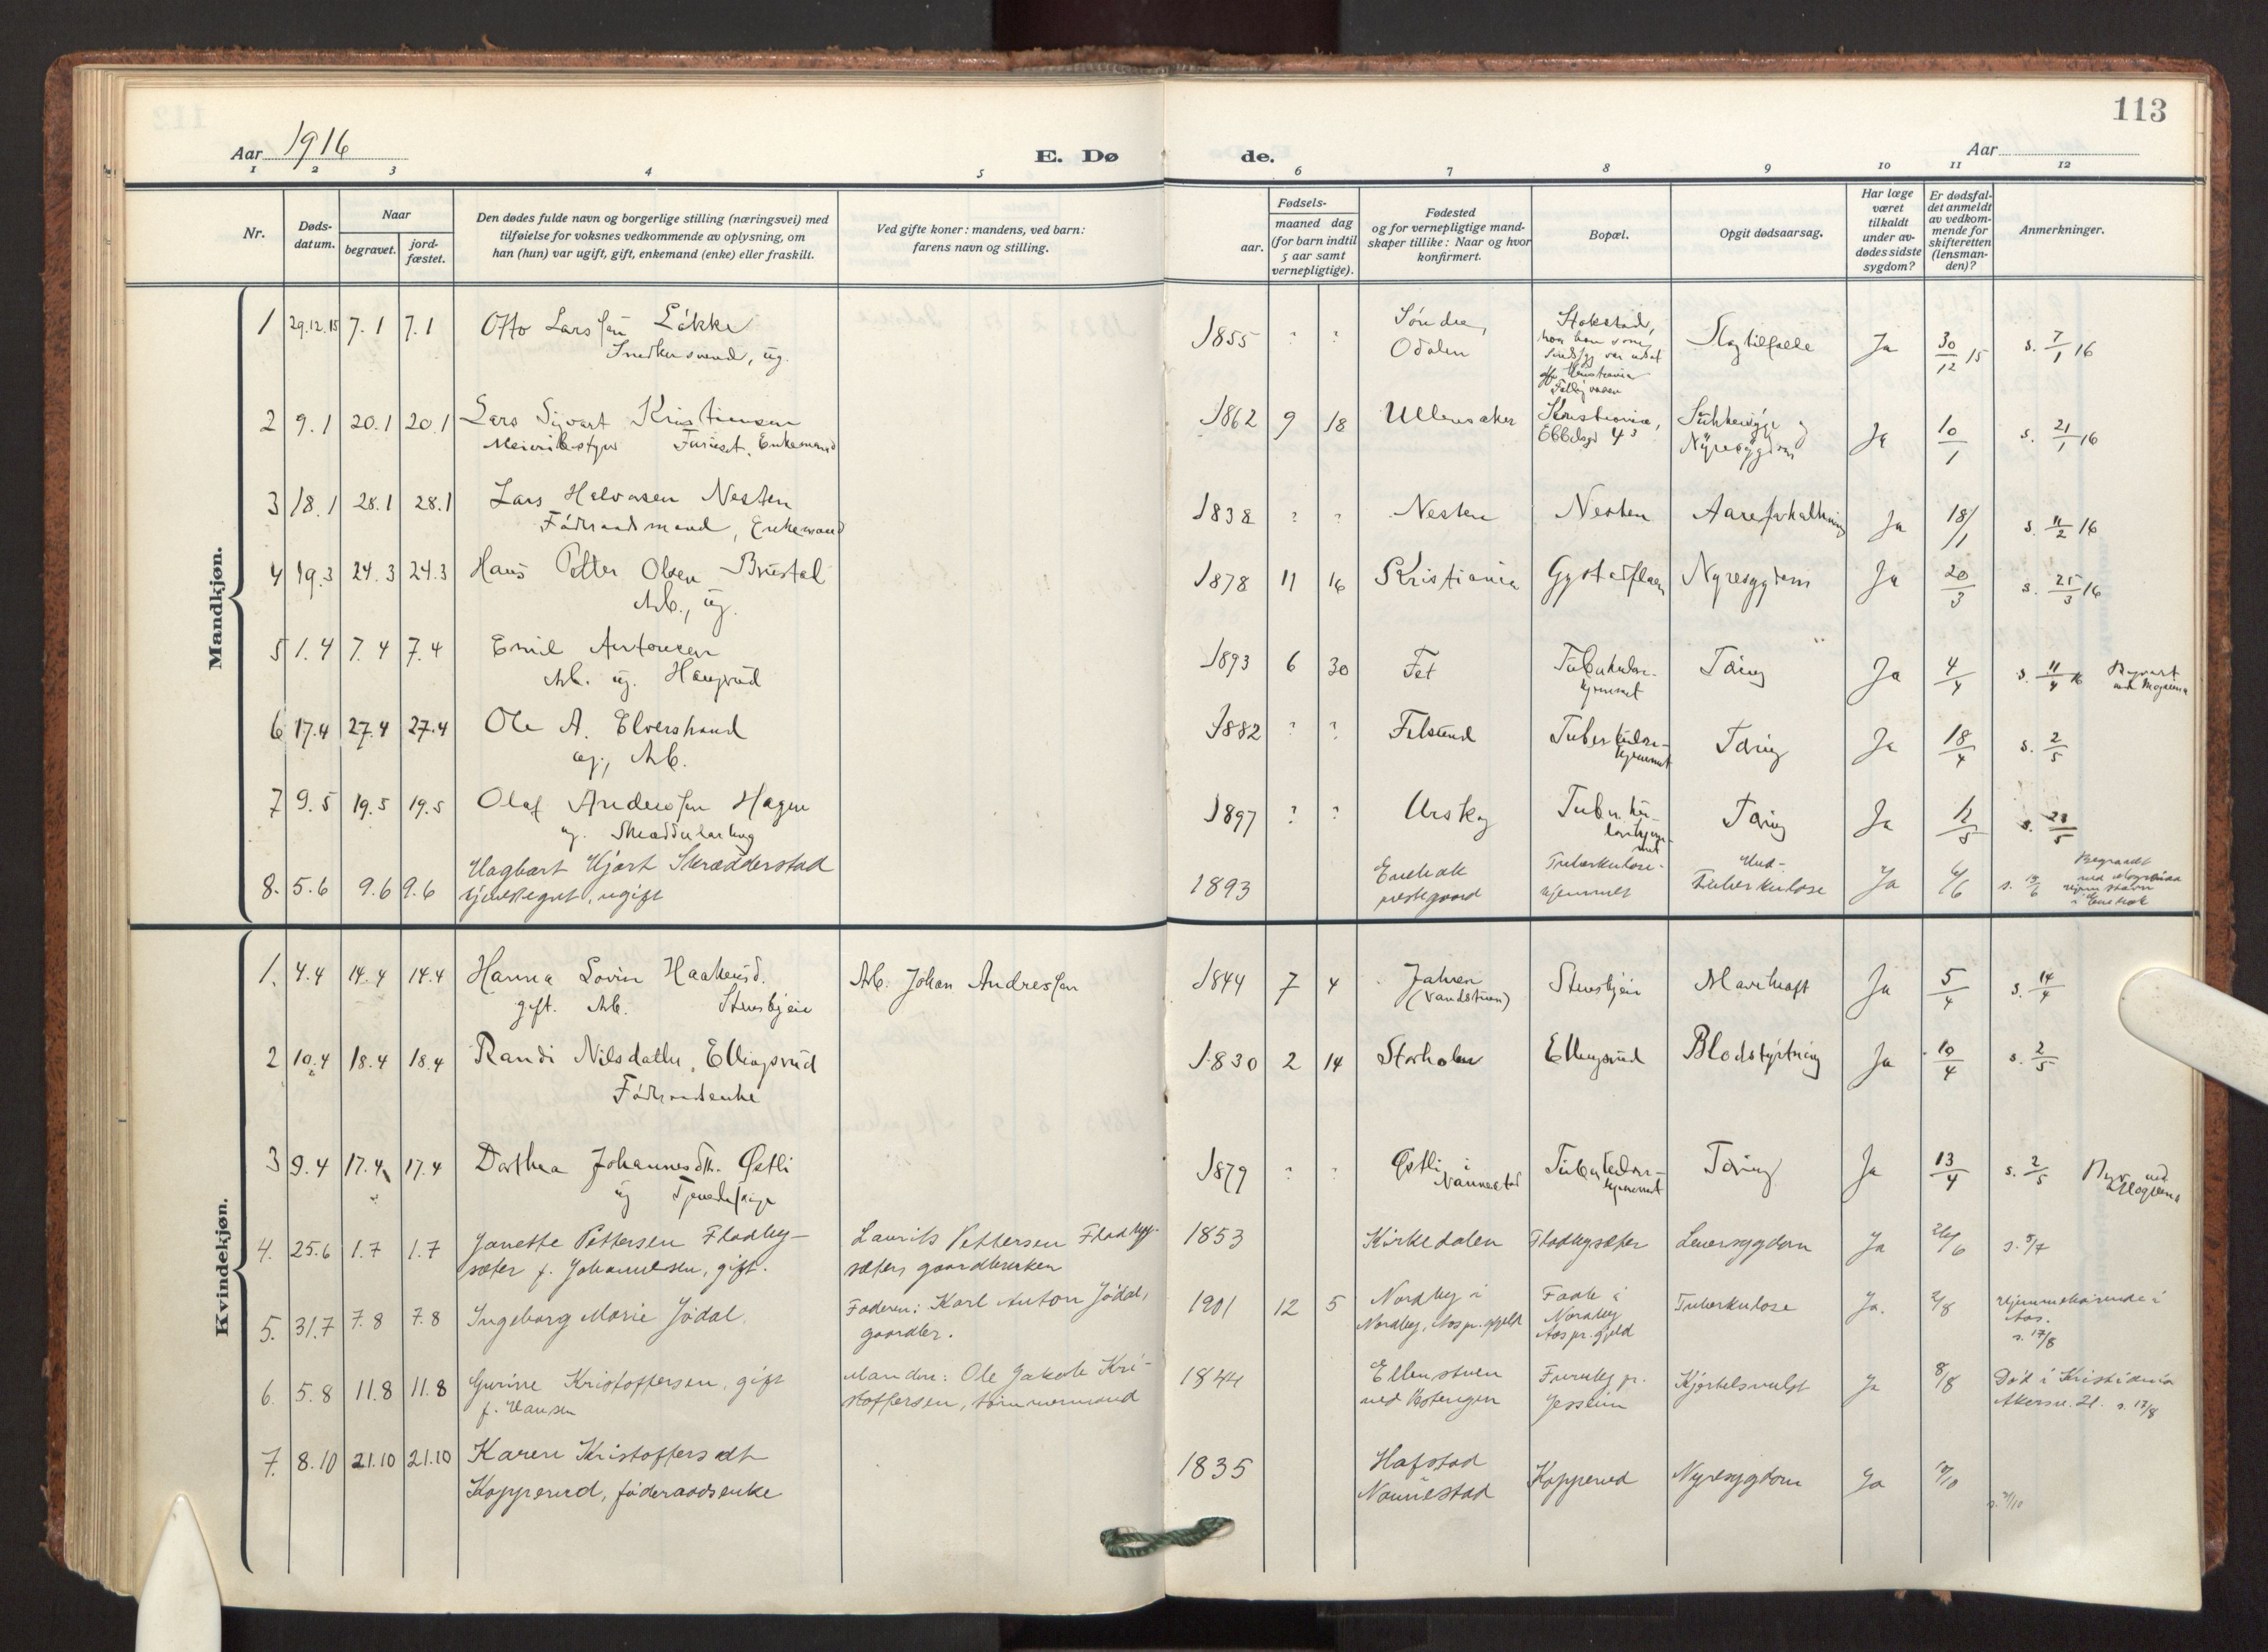 113
Aar 1916
E. Dø
de.
Aar
1 2 3 4 5 6 7 8 9 10 11 12
Nr.
Døds-
datum.
Naar
begravet.
jord-
fæstet.
Den dødes fulde navn og borgerlige stilling (næringsvei) med
tilføielse for voksnes vedkommende av oplysning, om
han (hun) var ugift, gift, enkemand (enke) eller fraskilt.
Ved gifte koner: mandens, ved barn:
farens navn og stilling.
Fødsels-
aar.
maaned dag
(for barn indtil
5 aar samt
vernepligtige).
Fødested
og for vernepligtige mand-
skaper tillike: Naar og hvor
konfirmert.
Bopæl.
Opgit dødsaarsag.
Har læge
været
tilkaldt
under av-
dødes sidste
sygdom?
Er dødsfal-
det anmeldt
av vedkom-
mende for
skifteretten
(lensman-
den)?
Anmerkninger.
Mandkjøn.
1 29.12.15 7.1 7.1 Otto Larssen Løkke 1855 ? ? Søndre Odalen Stokstad, Slagtilfælde Ja 30/12 15 s. 7/1 16
Snedkersvend, ug.
2 9.1 20.1 20.1 Lars Sigvart Kristiansen 1862 9 18 Ullensaker Kristiania, Sukkersyge og Nyresygdom Ja 10/1 s. 21/1 16
Meieribestyrer Enkemand
3 18.1 28.1 28.1 Lars Halvorsen Nesten 1838 ? ? Nesten Nesten Aareforkalkning Ja 18/1 s. 11/2 16
Føderaadsmand, Enkemand
4 19.3 24.3 24.3 Hans Petter Olsen 1878 11 16 Kristiania Nyresygdom Ja 20/3 s. 25/3 16
Arb., ug.
5 1.4 7.4 7.4 Emil Antonsen 1893 6 30 Fet Tuberkulose-hjemmet Tæring Ja 4/4 s. 11/4 16
Arb. ug. Haugrud
6 17.4 27.4 27.4 Ole A. Elverstrand 1882 ? ? Fetsund Tuberkulose-hjemmet Tæring Ja 18/4 s. 2/5
ug., Arb.
7 9.5 19.5 19.5 Olaf Anderssen Hagen 1897 ? ? Urskog Tuberkulosehjemmet Tæring Ja 12/5 s. 23/5
ug. Skrædderlærling
8. 5.6 9.6 9.6 Hagbart Hjort Skrædderstad 1893 Enebak prestegaard Tuberkulose-hjemmet Tuberkulose Ja 6/6
ugift
Kvindekjøn.
1. 4.4 14.4 14.4 Hanna Lovin Haakensd. Arb. Johan Andressen 1844 7 4 Jahren Stensbjein Marekraft Ja 5/4 s. 14/4
gift. Arb. Stensbjein
2 10.4 18.4 18.4 Randi Nilsdatter, Ellingsrud 1830 2 14 Storholen Ellingsrud Blodstyrtning Ja 10/4 s. 2/5
Føderaadsenke
3 9.4 17.4 17.4 Dorthea Johannesdtr. Østli 1879 ? ? Østli i Nannestad Tuberkulose-hjemmet Tæring Ja 13/4 s. 2/5
ug Tjenestepige
4. 25.6 1.7 1.7 Janette Pettersen Fladby- Laurits Pettersen Fladby- 1853 Kirkedalen Fladbysæter Leversygdom Ja 26/6 s. 5/7
sæter f. Johannesen, gift. sæter, gaardbruker
5. 31.7 7.8 7.8 Ingeborg Marie Jødal. Faderen: Karl Anton Jødal, 1901 12 5 Nordby i Nordby, Aas pr.gjeld Nordby Aas pr.gjeld Tuberkulose Ja. 2/8 Hjemmehørende i Aas. s. 17/8
gaardbr.
6. 5.8 11.8 11.8 Gurine Kristoffersen, gift Manden: Ole Jakob Kri- 1844 Ellenstuen Furuby pr. Jesseim Kjertelsvulst Ja 8/8 Død i Kristiania
f. Hansen stoffersen, tømmermand Akersv. 21. s. 17/8
7. 8.10 21.10 21.10 Karen Kristoffersdt 1835 Hafstad Nannestad Kopperud Nyresygdom Ja 10/10
Kopperud, føderaadsenke